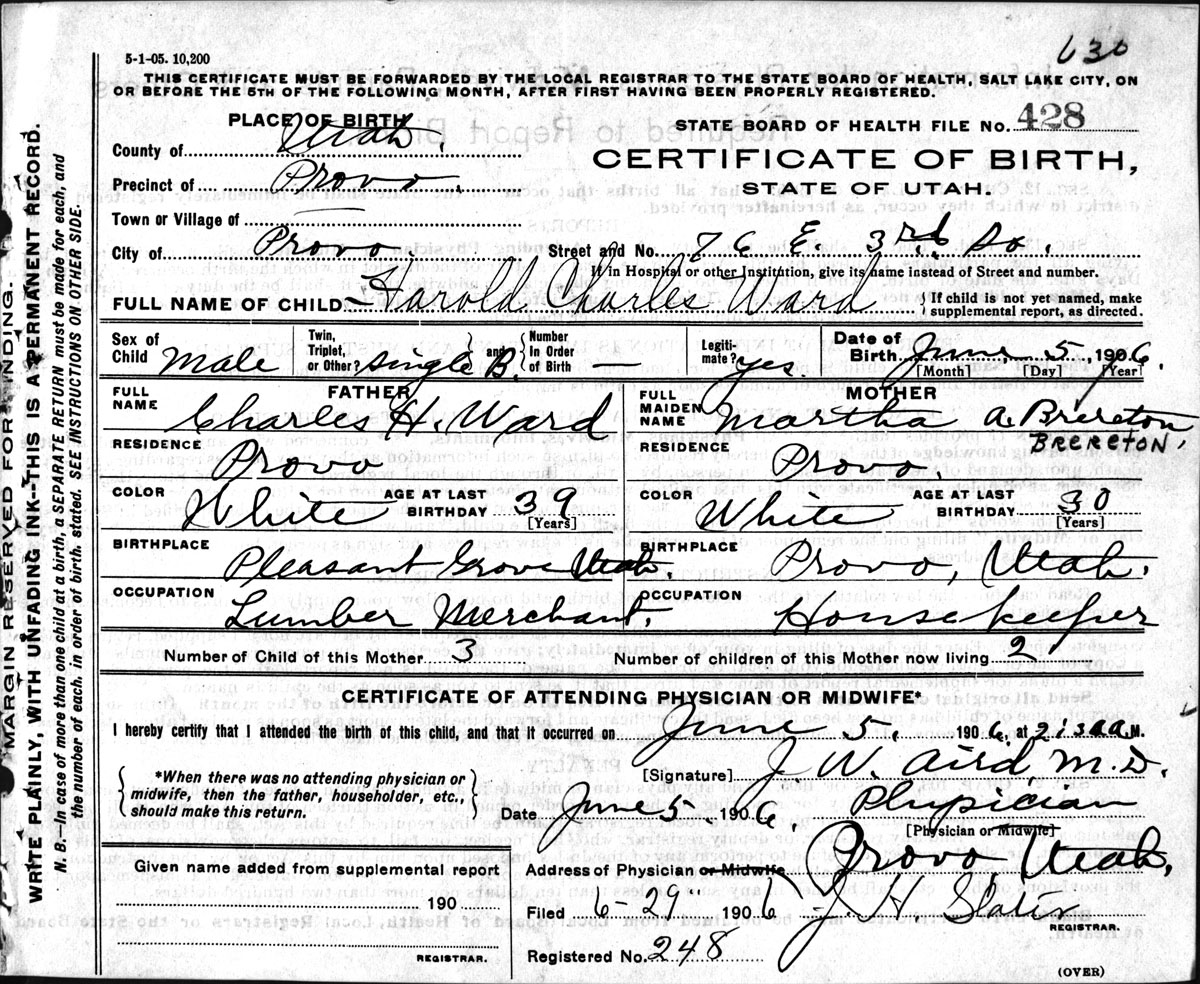 630
5-1-05. 10,200
THIS CERTIFICATE MUST BE FORWARDED BY THE LOCAL REGISTRAR TO THE STATE BOARD OF HEALTH, SALT LAKE CITY, ON
OR BEFORE THE 5TH OF THE FOLLOWING MONTH, AFTER FIRST HAVING BEEN PROPERLY REGISTERED.
PLACE OF BIRTH
STATE BOARD OF HEALTH FILE No. 428
County of Utah.
CERTIFICATE OF BIRTH,
Precinct of Provo.
STATE OF UTAH.
Town or Village of
City of Provo Street and No. 76 E. 3rd So.
If in Hospital or other Institution, give its name instead of Street and number.
FULL NAME OF CHILD Harold Charles Ward { If child is not yet named, make supplemental report, as directed.
Sex of Child Male Twin, Triplet, or Other? Single B. and Number In Order of Birth – Legitimate? yes. Date of Birth June 5, 1906
[Month] [Day] [Year]
FATHER MOTHER
FULL NAME Charles H. Ward FULL MAIDEN NAME Martha A Brereton
BRERETON,
RESIDENCE Provo RESIDENCE Provo.
COLOR White AGE AT LAST BIRTHDAY 39 [Years] COLOR White AGE AT LAST BIRTHDAY 30 [Years]
BIRTHPLACE Pleasant Grove Utah. BIRTHPLACE Provo, Utah.
OCCUPATION Lumber Merchant. OCCUPATION Housekeeper
Number of Child of this Mother 3 Number of children of this Mother now living 2
CERTIFICATE OF ATTENDING PHYSICIAN OR MIDWIFE*
I hereby certify that I attended the birth of this child, and that it occurred on June 5, 1906, at 2:30 a.M.
*When there was no attending physician or
midwife, then the father, householder, etc.,
should make this return.
[Signature] J. W. Aird, M.D.
Date June 5 1906. Physician
[Physician or Midwife]
Given name added from supplemental report
Address of Physician or Midwife Provo Utah.
190
Filed 6-29 1906 J. H. Slater
REGISTRAR.
REGISTRAR.
Registered No. 248
(OVER)
MARGIN RESERVED FOR BINDING.
WRITE PLAINLY, WITH UNFADING INK--THIS IS A PERMANENT RECORD.
N. B.--In case of more than one child at a birth, a SEPARATE RETURN must be made for each, and
the number of each, in order of birth, stated. SEE INSTRUCTIONS ON OTHER SIDE.